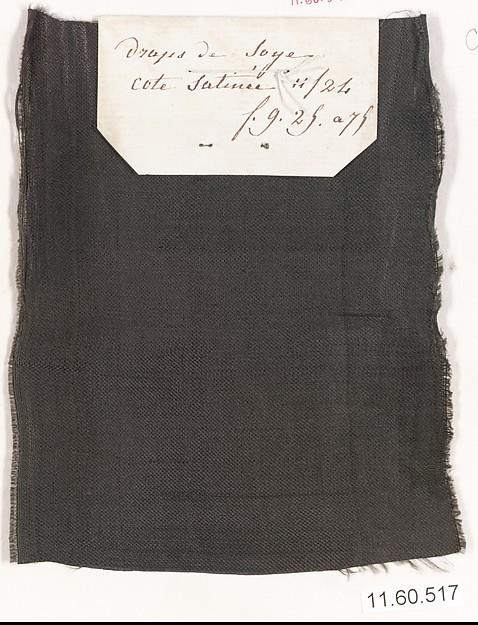 Draps de Soye
cote Satineé 11/24
f. 9. 25. a 75
11.60.517